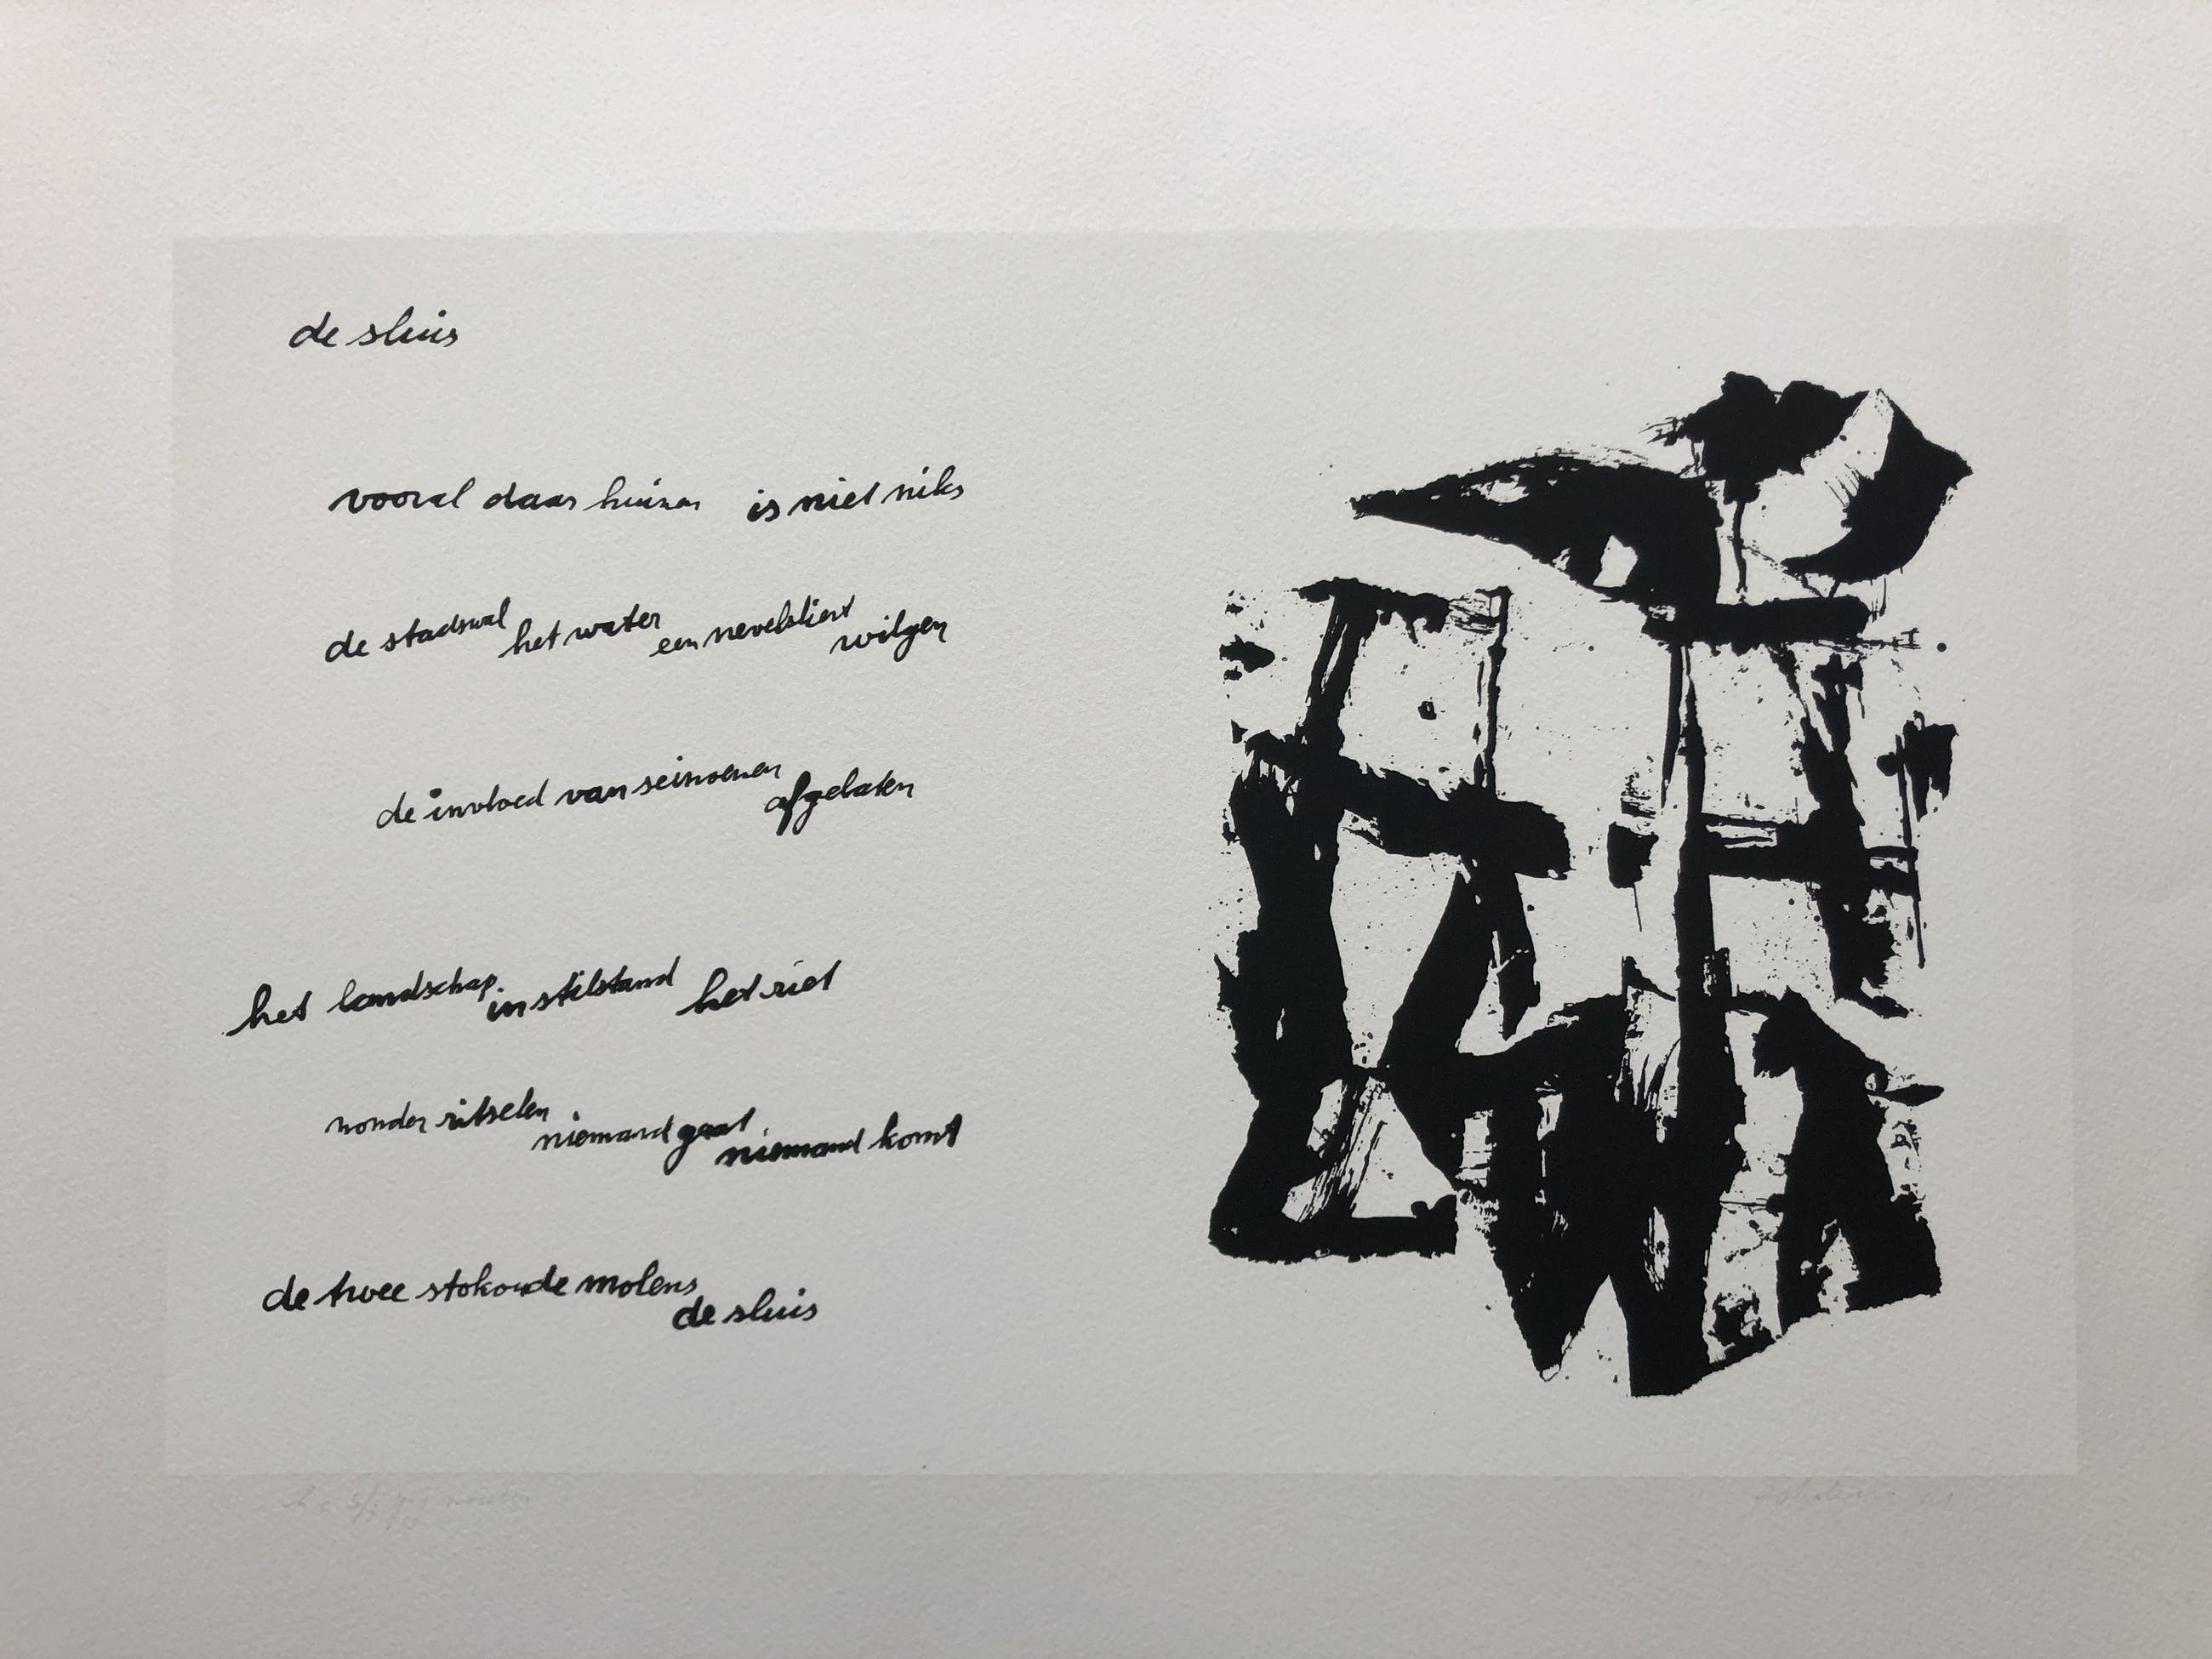 de sluis
vooral daar huizen is niet niks
de stadswal het water een nevelsliert wilgen
de invloed van seizoenen afgelaten
het landschap in stilstand het riet
zonder ritselen niemand gaat niemand komt
de twee stokoude molens
de sluis